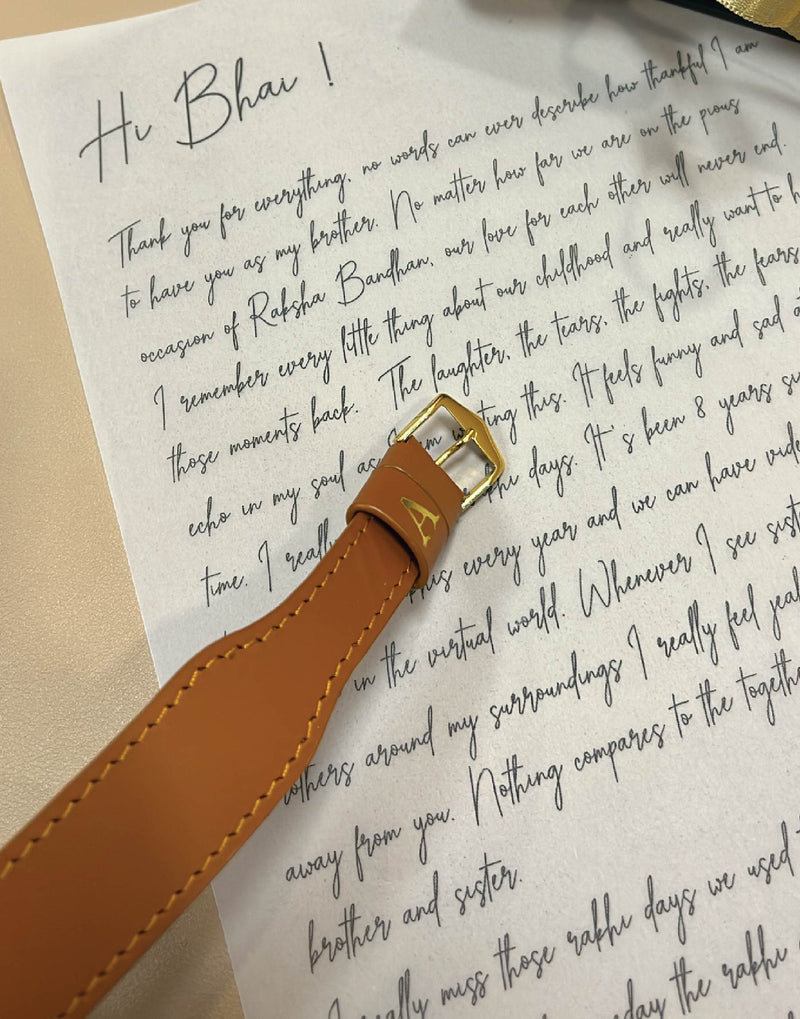 Hi Bhai !
Thank you for everything, no words can ever describe how thankful I am
to have you as my brother. No matter how far we are on the pious
occasion of Raksha Bandhan, our love for each other will never end.
I remember every little thing about our childhood and really want to
those moments back. The laughter, the tears, the fights, the fears
echo in my soul as I am writing this. It feels funny and sad
time. I really days. It's been 8 years
A
this every year and we can have
in the virtual world. Whenever I see
others around my surroundings I really feel
away from you. Nothing compares to the
brother and sister.
I really miss those rakhi days we used
the rakhi